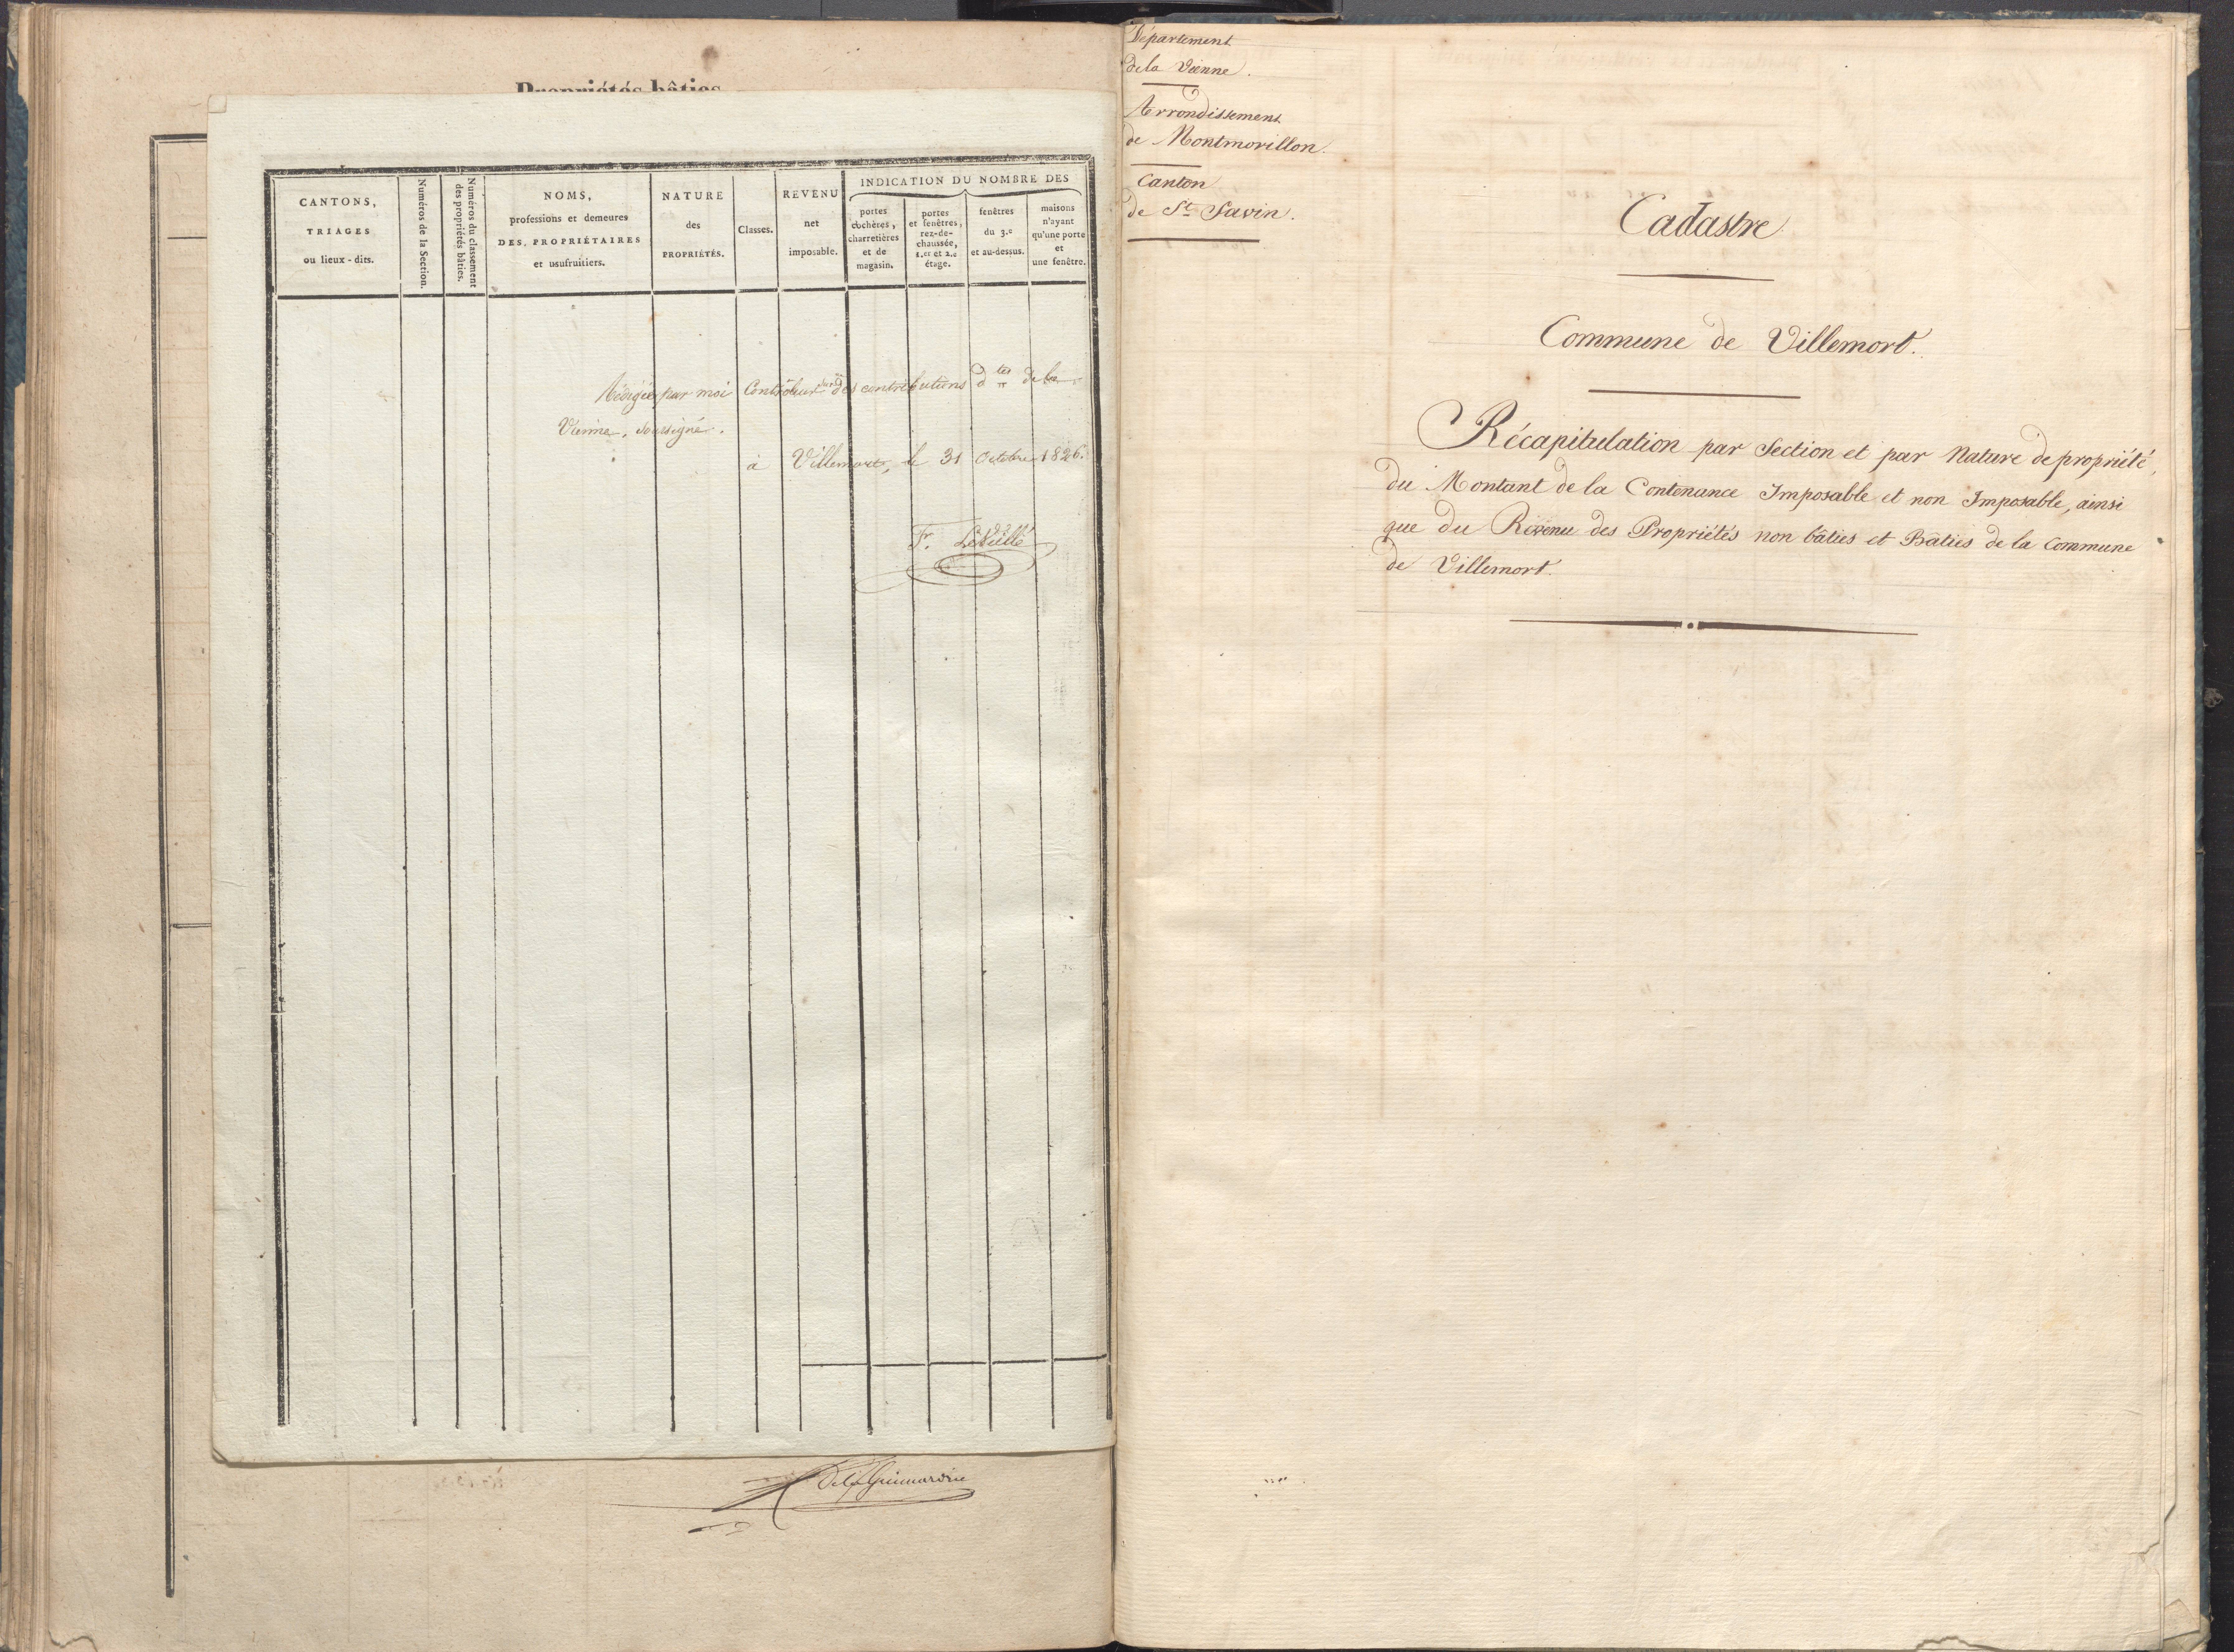 Propriétés bâties
CANTONS,
TRIAGES
ou lieux-dits.
Numéros de la Section.
Numéros du classement
des propriétés bâties.
NOMS,
professions et demeures
DES PROPRIÉTAIRES
et usufruitiers.
NATURE
des
PROPRIÉTÉS.
Classes.
REVENU
net
imposable.
INDICATION DU NOMBRE DES
portes
cochères,
charretières
et de
magasin.
portes
et fenêtres,
rez-de-
chaussée,
1.er et 2.e
étage.
fenêtres
du 3.e
et au-dessus.
maisons
n'ayant
qu'une porte
et
une fenêtre.
Rédigé par moi Contrôleur des contributions d.tes de la
Vienne, soussigné.
à Villemort, le 31 Octobre 1826.
Département
de la Vienne.
Arrondissement
de Montmorillon.
Canton
de St Savin.
Cadastre
Commune de Villemort.
Récapitulation par Section et par Nature de propriété,
du Montant de la Contenance Imposable et non Imposable, ainsi
que du Revenu des Propriétés non bâties et Bâties de la Commune
de Villemort.